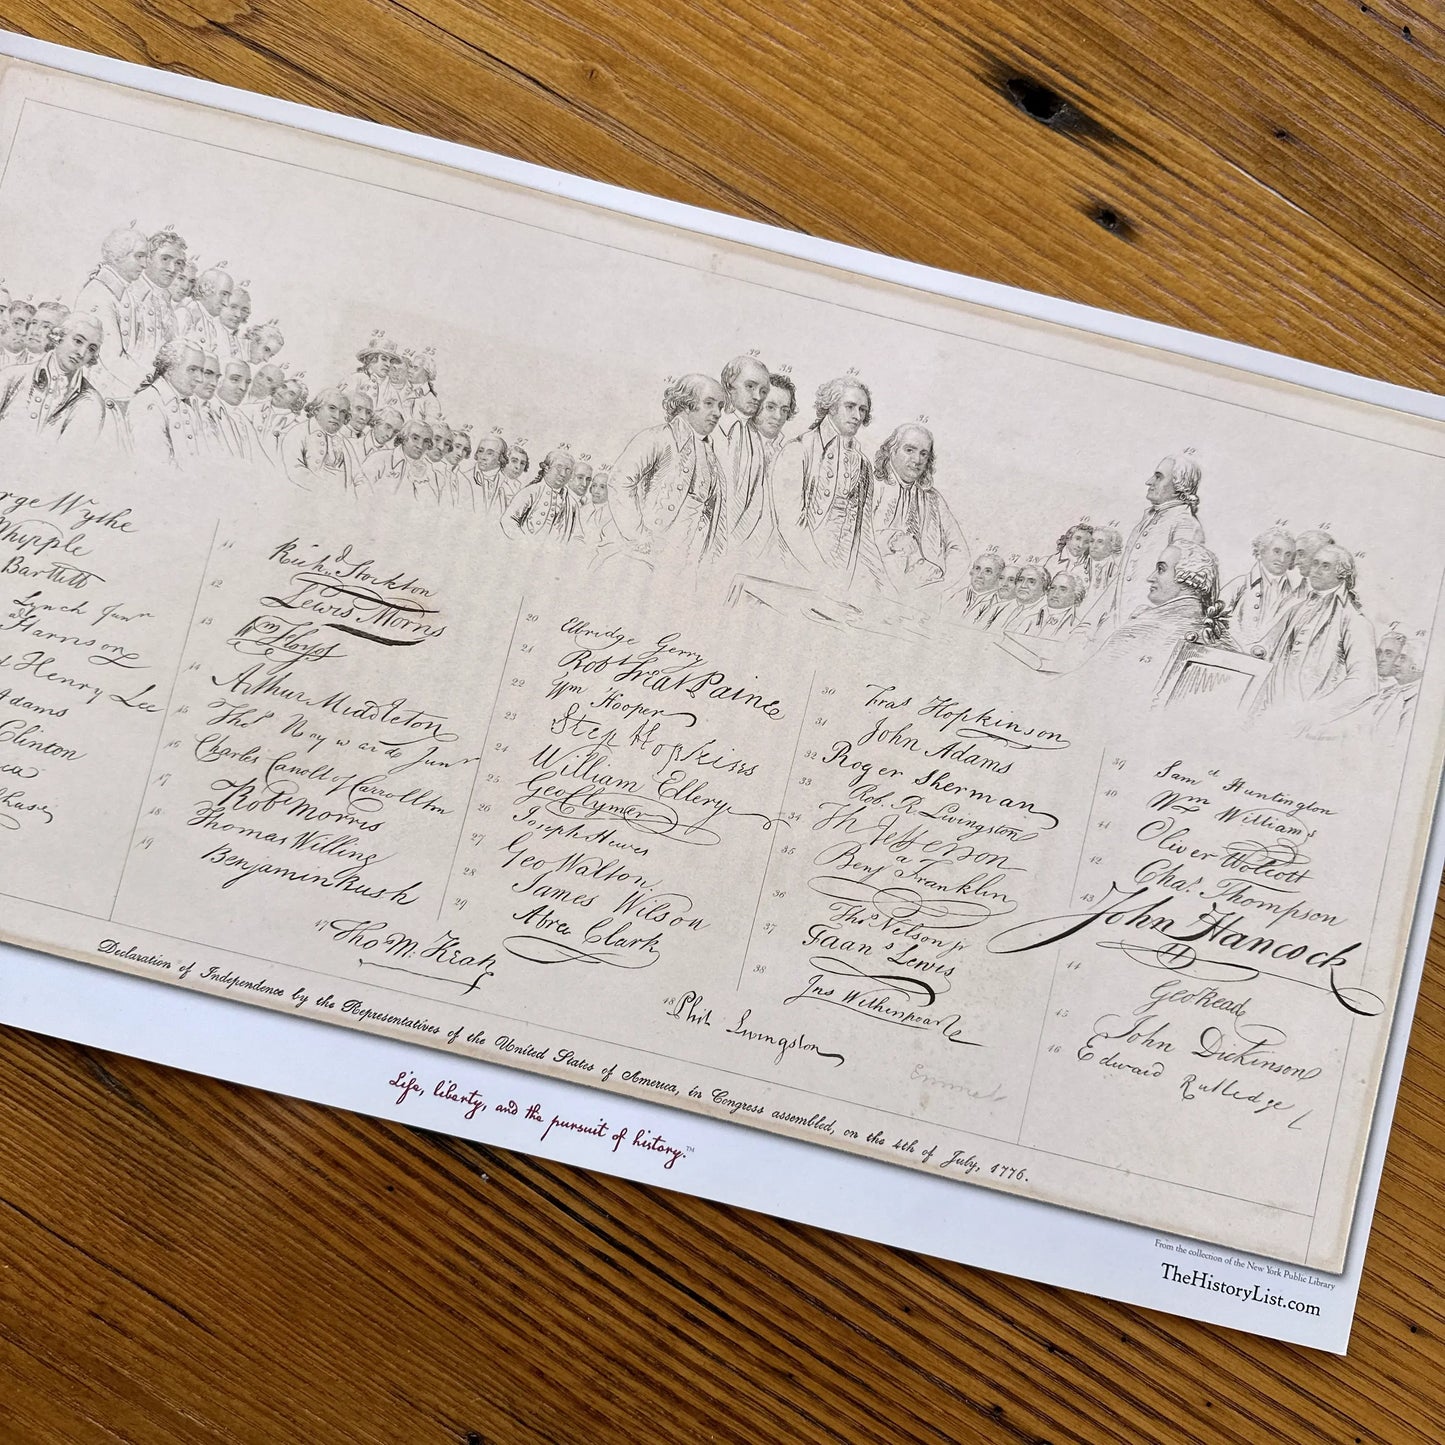 rge Wythe
Whipple
Bartlett
Lynch Junr
Harrison
Henry Lee
Adams
Clinton
11 Richd Stockton
12 Lewis Morris
13 Wm Floyd
14 Arthur Middleton
15 Thos Hayward Junr
16 Charles Carroll of Carrollton
17 Robt Morris
18 Thomas Willing
19 Benjamin Rush
47 Tho M. Kean
20 Elbridge Gerry
21 Robt Treat Paine
22 Wm Hooper
23 Step Hopkins
24 William Ellery
25 Geo Clymer
26 Joseph Hewes
27 Geo Walton.
28 James Wilson
29 Abra Clark
48 Phil. Livingston
30 Fras Hopkinson
31 John Adams
32 Roger Sherman
33 Rob. R Livingston
34 Th Jefferson
35 Benja Franklin
36 Thos Nelson jr
37 Frans Lewis
38 Jno Witherspoon
39 Saml Huntington
40 Wm Williams
41 Oliver Wolcott
42 Chas. Thompson
43 John Hancock
44 Geo Read
45 John Dickinson
46 Edward Rutledge
Declaration of Independence by the Representatives of the United States of America, in Congress assembled, on the 4th of July, 1776.
Life, liberty, and the pursuit of history.™
From the collection of the New York Public Library
TheHistoryList.com